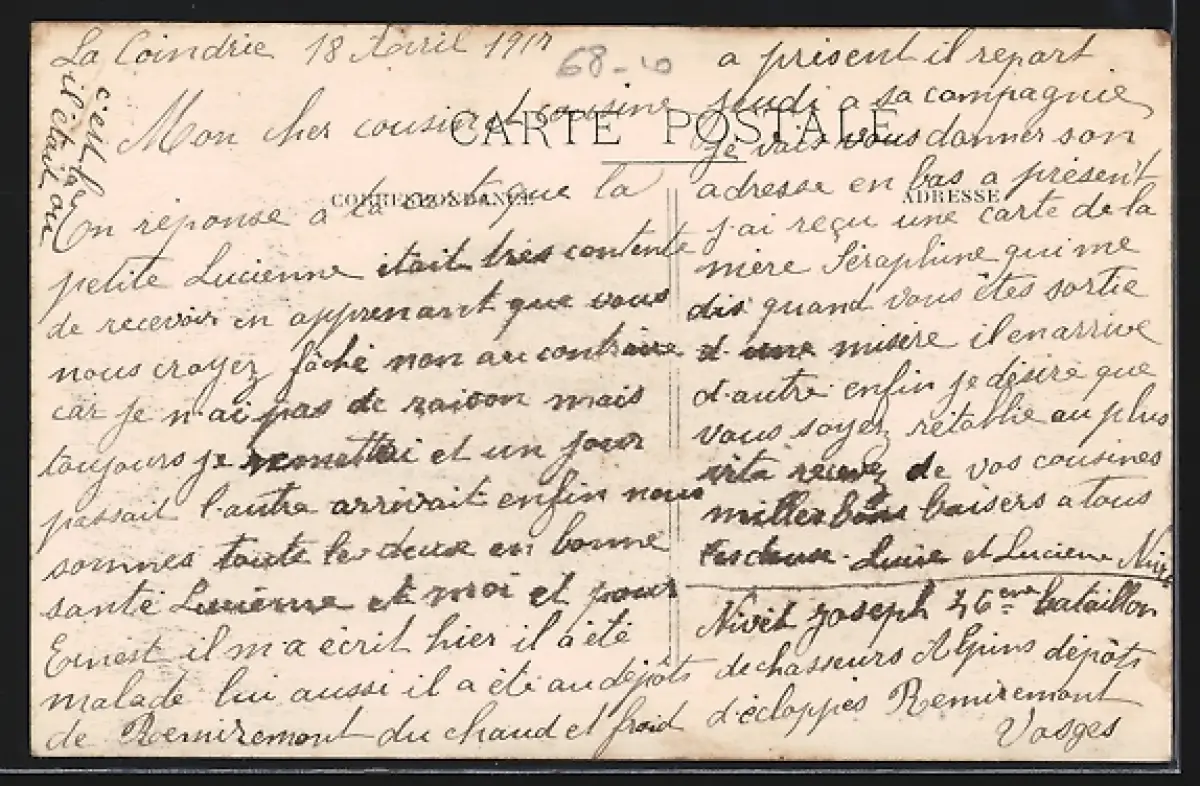 La Coindrie 18 Avril 1917
68-10
c'est la
il était où
Mon cher cousin et cousine
CARTE POSTALE
CORRESPONDANCE
ADRESSE
En réponse a ta carte que la
petite Lucienne était très contente
de recevoir en apprenant que vous
nous croyez fâché non au contraire
car je n'ai pas de raison mais
toujours je remettai et un jour
passait l'autre arrivait enfin nous
sommes toute les deux en bonne
santé Lucienne et moi et pour
Ernest il m'a écrit hier il a été
malade lui aussi il a été au dépôts
de Remiremont du chaud et froid
a présent il repart
jeudi a sa compagnie
je vais vous donner son
adresse en bas a présent
j'ai reçu une carte de la
mère Séraphine qui me
dis quand vous êtes sortie
d'une misère il en arrive
d'autre enfin je désire que
vous soyez rétablie au plus
vita recevez de vos cousines
milles bons baisers a tous
les deux. et Lucienne
Nivet Joseph 46eme bataillon
de chasseurs Alpins dépôts
d'écloppés Remiremont
Vosges